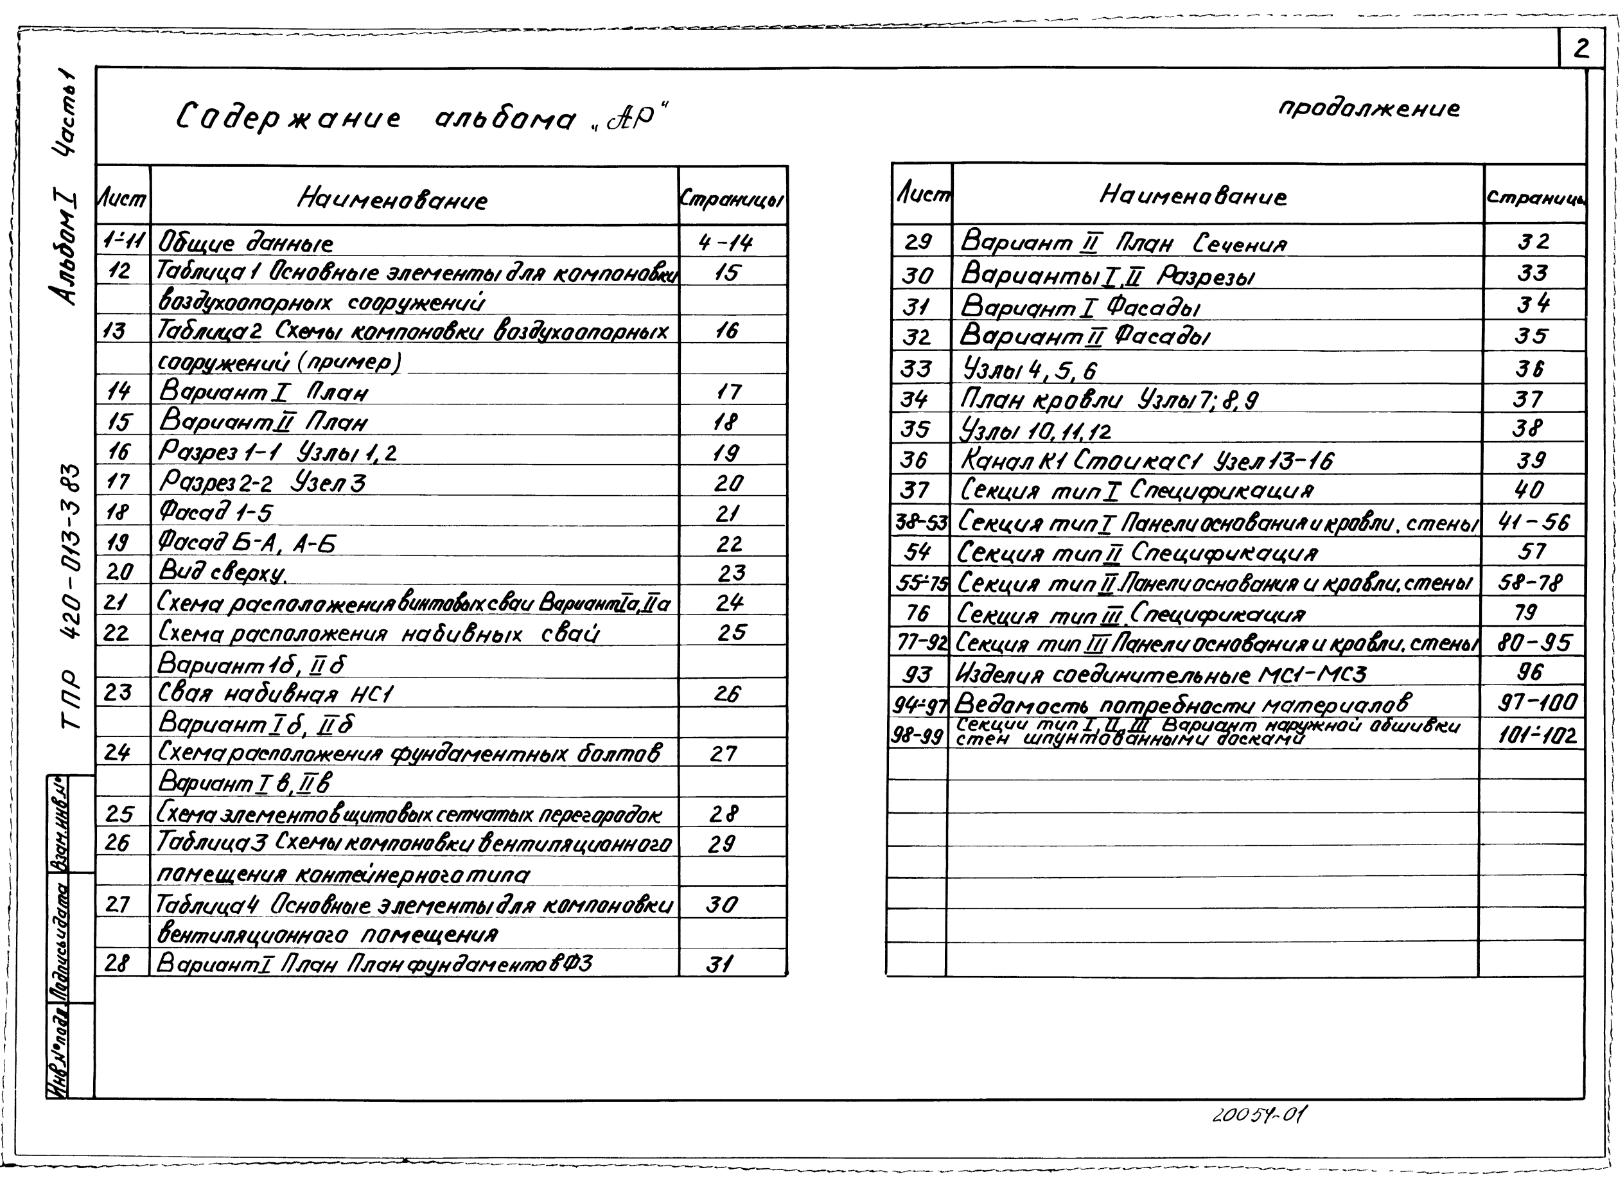 2
Альбом I Часть 1
ТПР 420-013-3 83
Содержание альбома „АР"
Лист Наименование Страницы
1-11 Общие данные 4-14
12 Таблица 1 Основные элементы для компоновки 15
воздухоопорных сооружений
13 Таблица 2 Схемы компоновки воздухоопорных 16
сооружений (пример)
14 Вариант I План 17
15 Вариант II План 18
16 Разрез 1-1 Узлы 1, 2 19
17 Разрез 2-2 Узел 3 20
18 Фасад 1-5 21
19 Фасад Б-А, А-Б 22
20 Вид сверху. 23
21 Схема расположения винтовых сваи Вариант Iа, IIа 24
22 Схема расположения набивных свай 25
Вариант 1б, II б
23 Свая набивная НС1 26
Вариант I б, II б
24 Схема расположения фундаментных болтов 27
Вариант I в, II в
25 Схема элементов щитовых сетчатых перегородок 28
26 Таблица 3 Схемы компоновки вентиляционного 29
помещения контейнерного типа
27 Таблица 4 Основные элементы для компоновки 30
вентиляционного помещения
28 Вариант I План План фундаментов Ф3 31
продолжение
Лист Наименование Страницы
29 Вариант II План Сечения 32
30 Варианты I, II Разрезы 33
31 Вариант I Фасады 34
32 Вариант II Фасады 35
33 Узлы 4, 5, 6 36
34 План кровли Узлы 7; 8, 9 37
35 Узлы 10, 11, 12 38
36 Канал К1 Стоика С1 Узел 13-16 39
37 Секция тип I Спецификация 40
38-53 Секция тип I Панели основания и кровли, стены 41-56
54 Секция тип II Спецификация 57
55-75 Секция тип II. Панели основания и кровли, стены 58-78
76 Секция тип III. Спецификация 79
77-92 Секция тип III Панели основания и кровли, стены 80-95
93 Изделия соединительные МС1-МС3 96
94-97 Ведомость потребности материалов 97-100
98-99 Секции тип I, II, III Вариант наружной обшивки 101-102
стен шпунтованными досками
Инв.№ подл. Подпись и дата Взам.инв.№
20054-01